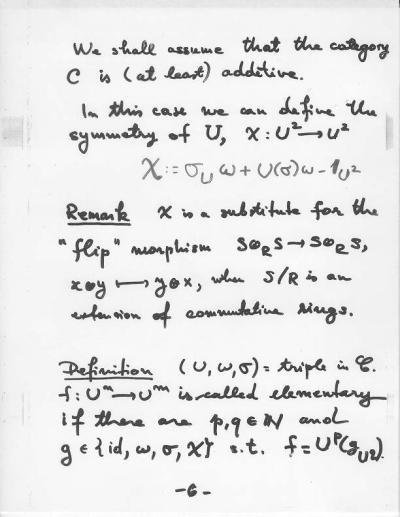 We shall assume that the category
C is (at least) additive.
In this case we can define the
symmetry of U, χ: U² → U²
χ := σ_U ω + U(σ)ω - 1_{U²}
Remark χ is a substitute for the
"flip" morphism S⊗_R S → S⊗_R S,
x⊗y ⟼ y⊗x, when S/R is an
extension of commutative rings.
Definition (U, ω, σ) = triple in C.
f: Uⁿ → Uᵐ is called elementary
if there are p,q ∈ ℕ and
g ∈ {id, ω, σ, χ} s.t. f = Uᵖ(g_{U^q}).
-6-